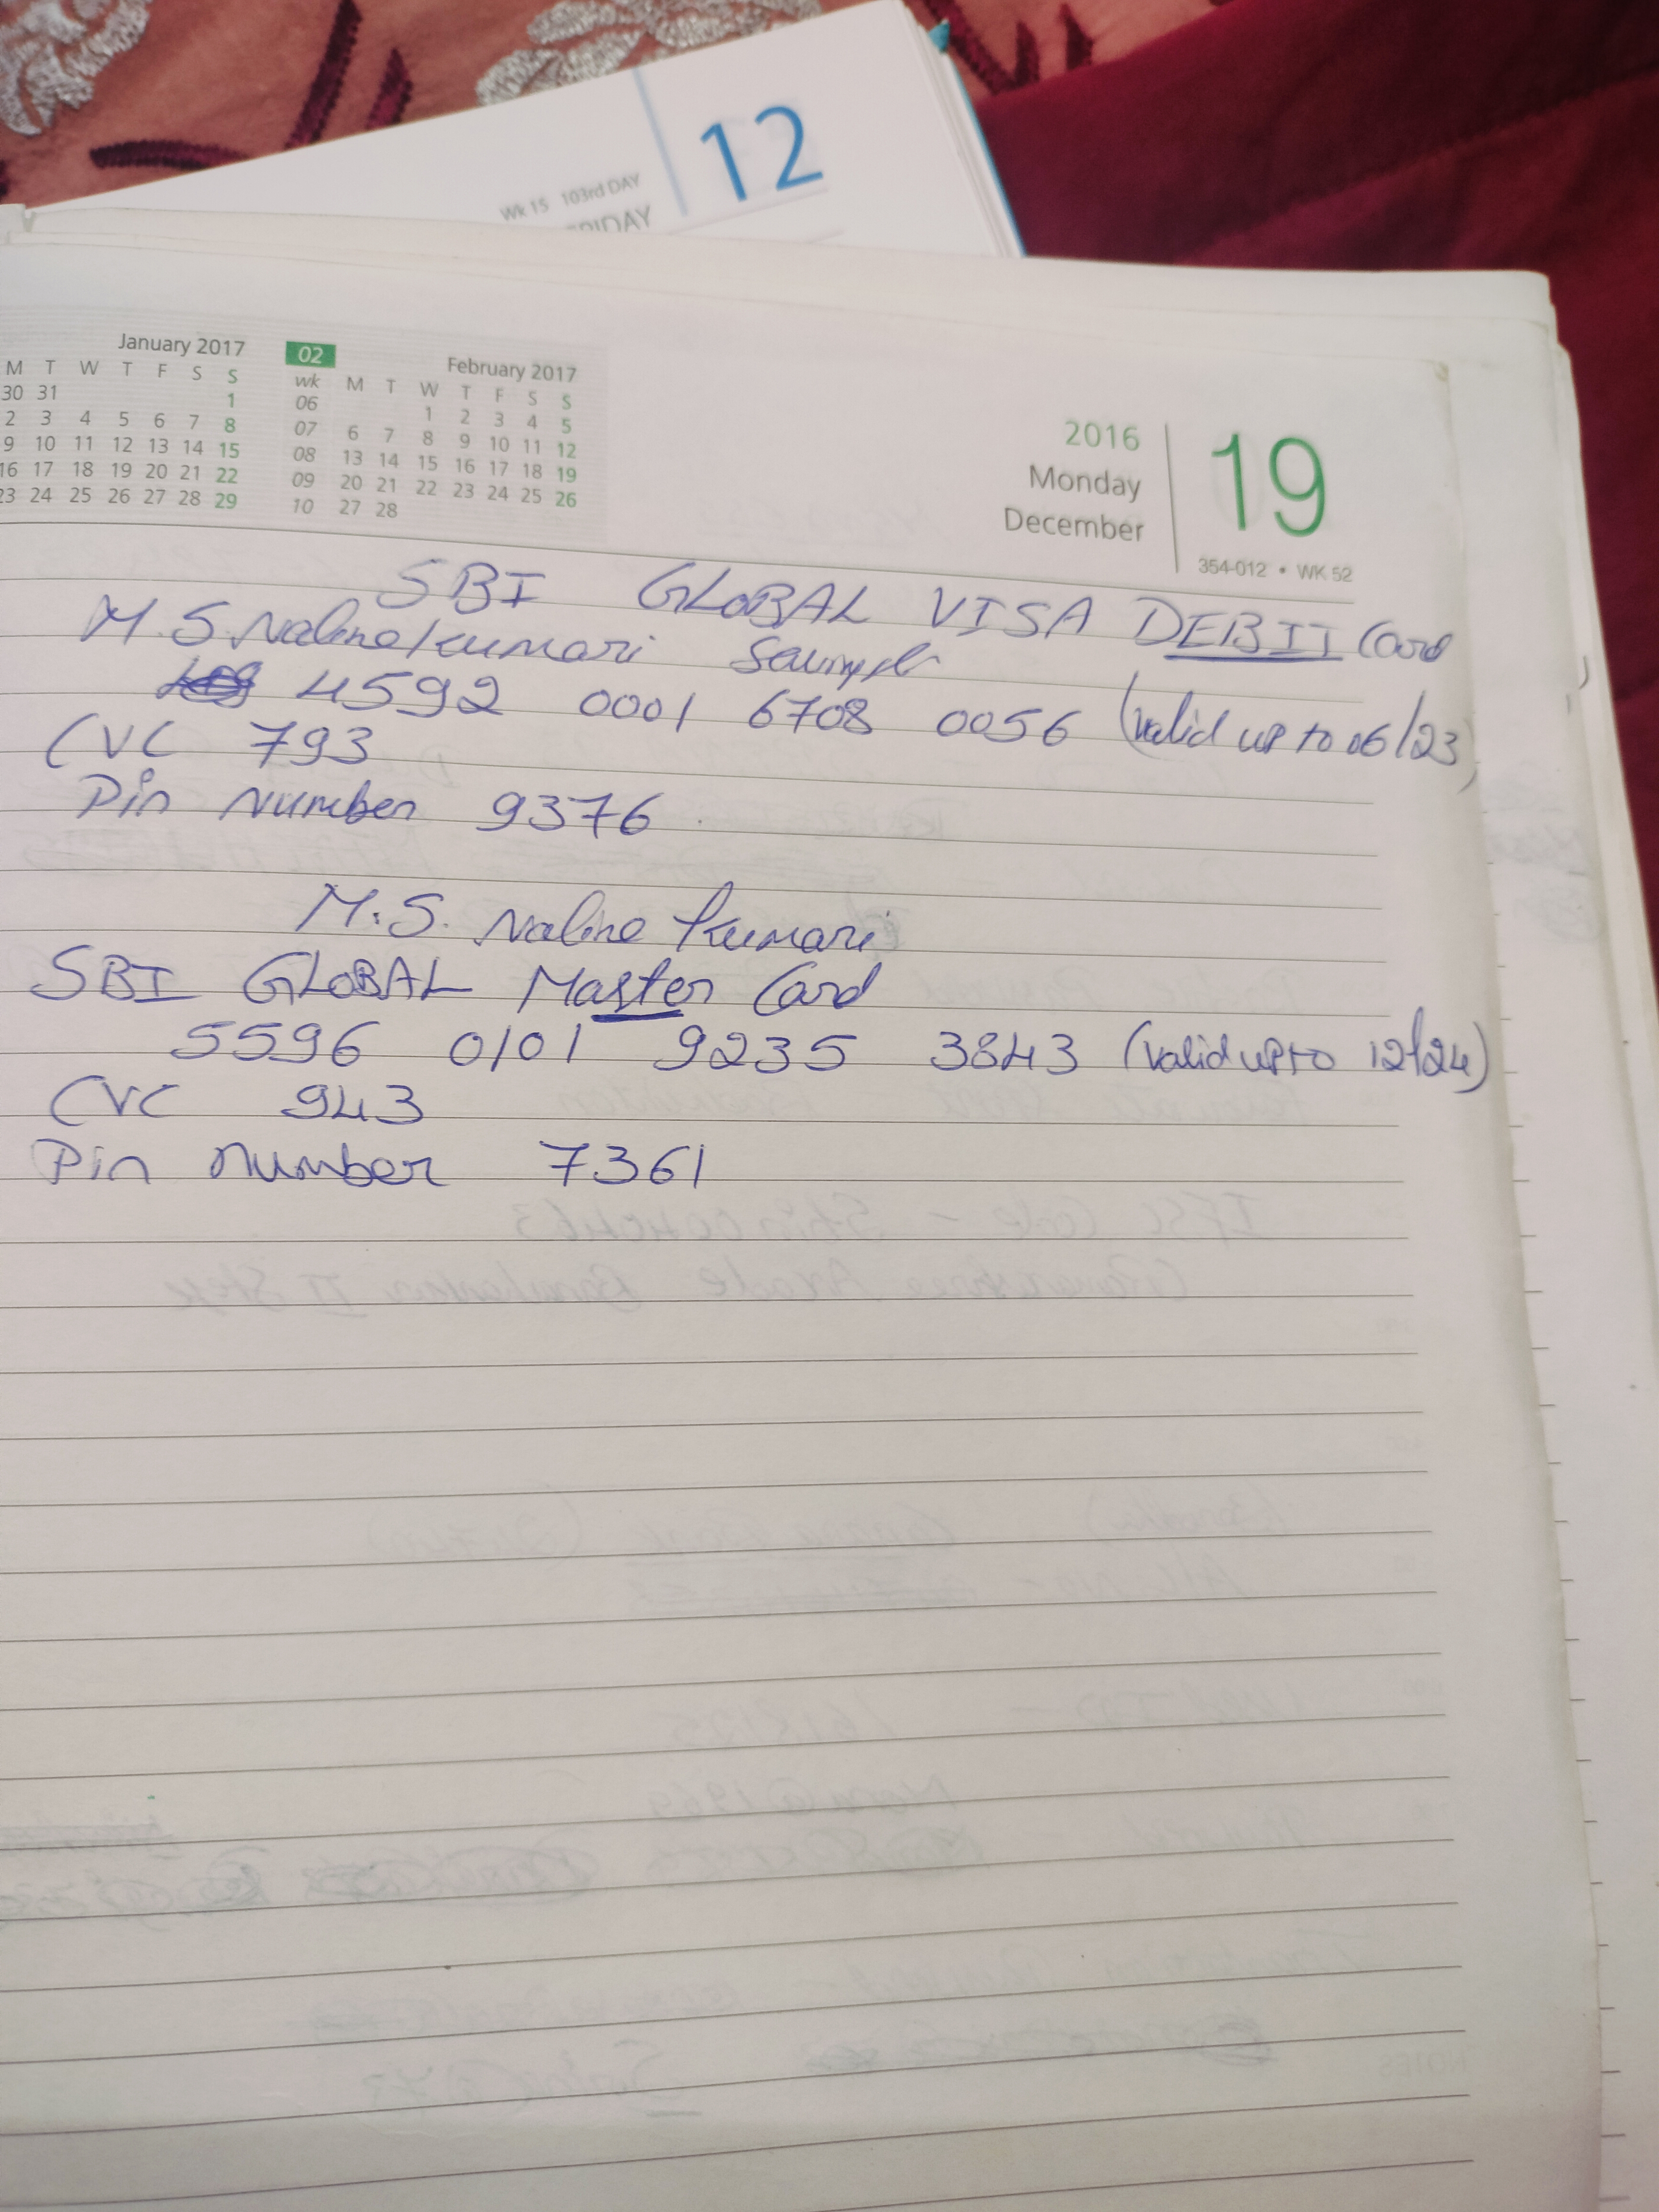 12
Wk 15 103rd DAY
January 2017
M T W T F S S
30 31 1
2 3 4 5 6 7 8
9 10 11 12 13 14 15
16 17 18 19 20 21 22
23 24 25 26 27 28 29
02 February 2017
wk M T W T F S S
06 1 2 3 4 5
07 6 7 8 9 10 11 12
08 13 14 15 16 17 18 19
09 20 21 22 23 24 25 26
10 27 28
2016
Monday
December
19
354-012 • WK 52
SBI GLOBAL VISA DEBIT Card
M.S. Naline kumari
[redacted] (valid up to 06/23)
CVC [redacted]
Pin Number [redacted]
M.S. Naline Kumari
SBI GLOBAL Master Card
[redacted] (valid upto 12/24)
CVC [redacted]
Pin number [redacted]